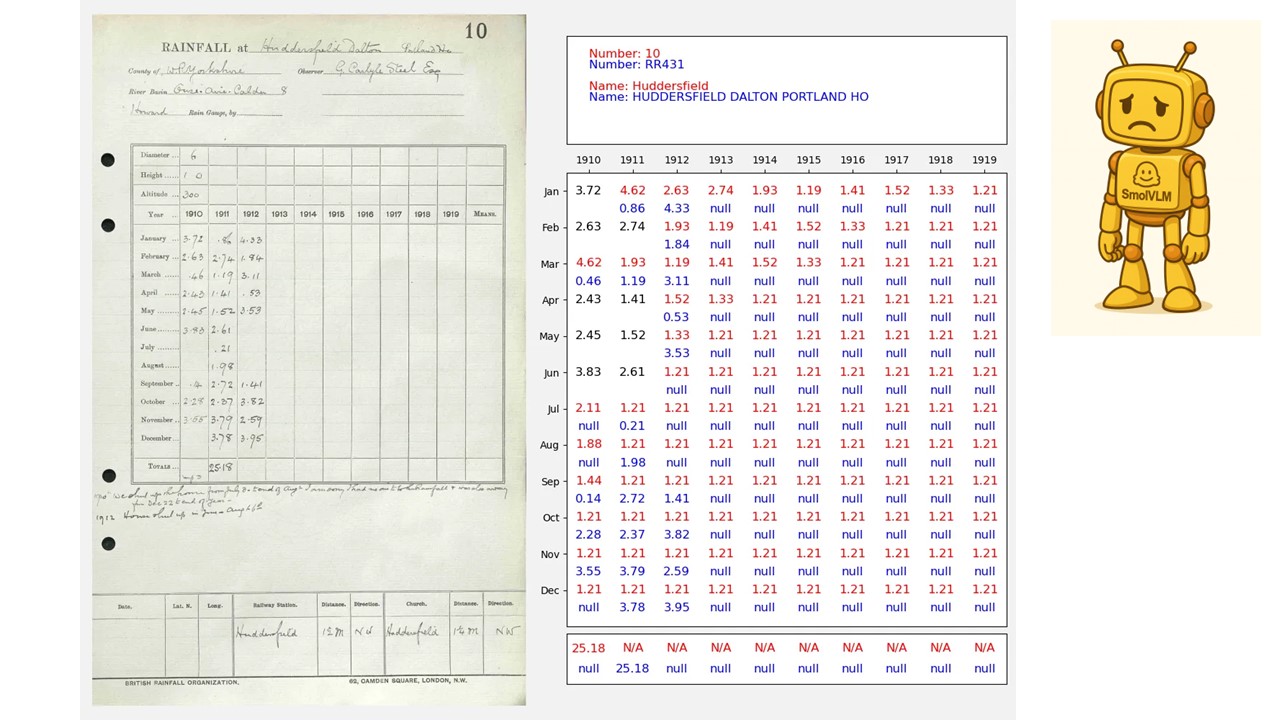 10
RAINFALL at Huddersfield Dalton
County of W.R. Yorkshire Observer G. Carlyle Steel Esq
River Basin Ouse. Aire. Calder 8
Howard Rain Gauge, by
Diameter ... 6
Height ...... 1 0
Altitude ... 300
Year .. 1910 1911 1912 1913 1914 1915 1916 1917 1918 1919 MEANS.
January ... 3.72 .86 4.33
February ... 2.63 2.74 1.84
March ...... .46 1.19 3.11
April ...... 2.43 1.41 .53
May ...... 2.45 1.52 3.53
June......... 3.83 2.61
July ...... .21
August...... 1.98
September .. .14 2.72 1.41
October ... 2.28 2.37 3.82
November .. 3.55 3.79 2.59
December... 3.78 3.95
TOTALS ... 25.18
1912 House shut up in June Aug
Date. Lat. N. Long. Railway Station. Distance. Direction. Church. Distance. Direction.
Huddersfield 1¾ M NW Huddersfield 1¾ M NW
BRITISH RAINFALL ORGANIZATION. 62, CAMDEN SQUARE, LONDON, N.W.
Number: 10
Number: RR431
Name: Huddersfield
Name: HUDDERSFIELD DALTON PORTLAND HO
1910 1911 1912 1913 1914 1915 1916 1917 1918 1919
Jan 3.72 4.62 2.63 2.74 1.93 1.19 1.41 1.52 1.33 1.21
0.86 4.33 null null null null null null null
Feb 2.63 2.74 1.93 1.19 1.41 1.52 1.33 1.21 1.21 1.21
1.84 null null null null null null null
Mar 4.62 1.93 1.19 1.41 1.52 1.33 1.21 1.21 1.21 1.21
0.46 1.19 3.11 null null null null null null null
Apr 2.43 1.41 1.52 1.33 1.21 1.21 1.21 1.21 1.21 1.21
0.53 null null null null null null null
May 2.45 1.52 1.33 1.21 1.21 1.21 1.21 1.21 1.21 1.21
3.53 null null null null null null null
Jun 3.83 2.61 1.21 1.21 1.21 1.21 1.21 1.21 1.21 1.21
null null null null null null null null
Jul 2.11 1.21 1.21 1.21 1.21 1.21 1.21 1.21 1.21 1.21
null 0.21 null null null null null null null null
Aug 1.88 1.21 1.21 1.21 1.21 1.21 1.21 1.21 1.21 1.21
null 1.98 null null null null null null null null
Sep 1.44 1.21 1.21 1.21 1.21 1.21 1.21 1.21 1.21 1.21
0.14 2.72 1.41 null null null null null null null
Oct 1.21 1.21 1.21 1.21 1.21 1.21 1.21 1.21 1.21 1.21
2.28 2.37 3.82 null null null null null null null
Nov 1.21 1.21 1.21 1.21 1.21 1.21 1.21 1.21 1.21 1.21
3.55 3.79 2.59 null null null null null null null
Dec 1.21 1.21 1.21 1.21 1.21 1.21 1.21 1.21 1.21 1.21
null 3.78 3.95 null null null null null null null
25.18 N/A N/A N/A N/A N/A N/A N/A N/A N/A
null 25.18 null null null null null null null null
SmolVLM